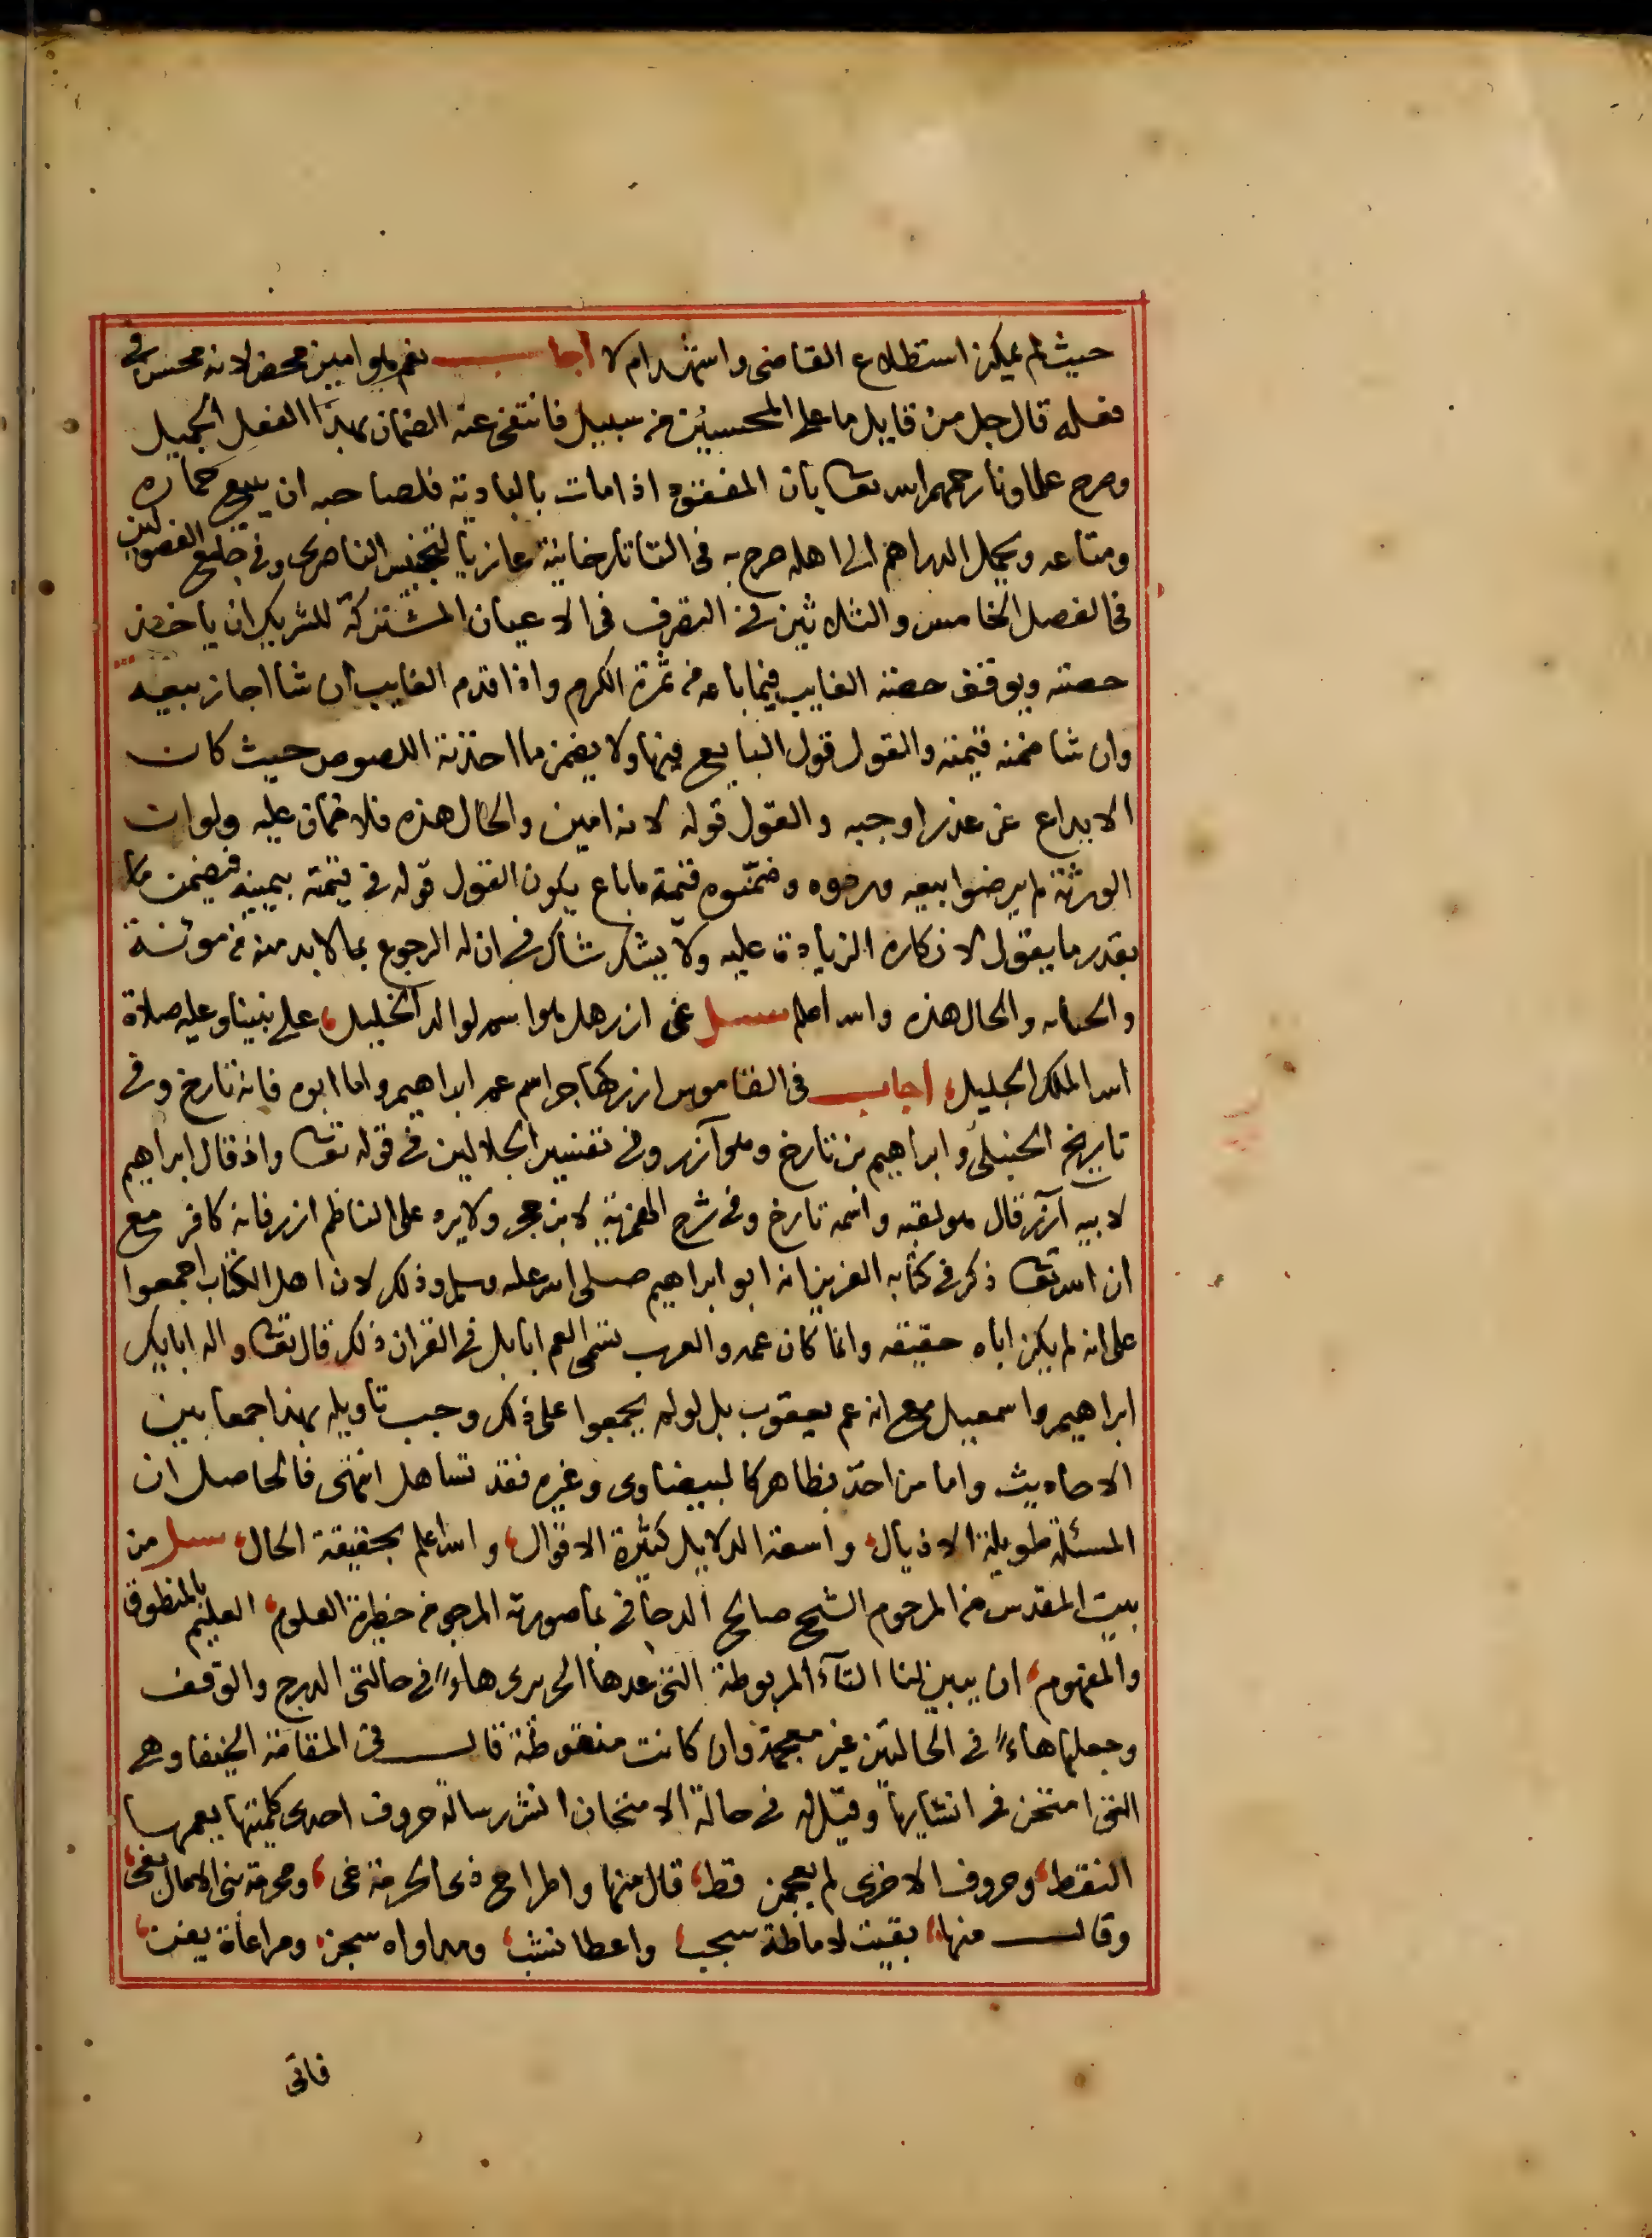 حيث لم يمكن استطلاع القاضي واستئمرام لا اجاب نعم هو امين محض لانه محسن في
فعله قال جل من قايل ما على المحسنين من سبيل فانتفى عنه الضمان بهذا الفعل الجميل
وصرح علماونا رحمهم الله تعا بان اذا مات بالبادية فلصاحبه ان يبيع حماره
ومتاعه ويحمل الدراهم الى اهله صرح به في التاتارخانية عازيا لتجنيس الناصري وفي جامع الفصولين
في الفصل الخامس والثلاثين في التصرف في الاعيان المشتركة للشريك ان ياخذ
حصته ويوقف حصته الغايب فيما باعه من ثمرة الكرم واذا قدم الغايب ان شا اجاز بيعه
وان شا ضمنه قيمته والقول قول البايع فيها ولا يضمن ما اخذته اللصوص حيث كان
الايداع عن عذر اوجبه والقول قوله لانه امين والحال هذه فلا ضمان عليه ولو ان
الورثة لم يرضوا بيعه وردوه وضمنوه قيمة ما باع يكون القول قوله في قيمته بيمينه فيضمن ما
بقدر ما يقول لانكاره الزيادة عليه ولا يشك شاك في ان له الرجوع بما لا بد منه من مونة
والحال هذه والله اعلم سيل عن ازر هل هو اسم لوالد الخليل، على نبينا وعليه صلاة
الله الملك الجليل، اجاب في القاموس ازر كهاجر اسم عم ابراهيم واما ابوه فانه تارخ وفي
تاريخ الحنبلي وابراهيم بن تارخ وهو آزر وفي تفسير الجلالين في قوله تعا واذ قال ابراهيم
لابيه آزر قال هو لقبه واسمه تارخ وفي شرح الهمزية لابن حجر ولا يرد على الناظم ازر فانه كافر مع
ان الله تعا ذكر في كتابه العزيز انه ابو ابراهيم صلى الله عليه وسلم وذلك لان اهل الكتاب اجمعوا
على انه لم يكن اباه حقيقه وانما كان عمه والعرب تسمي العم ابا بل في القران ذلك قال تعا واله ابايك
ابراهيم واسمعيل مع انه عم يعقوب بل لو لم يجمعوا على ذلك وجب تاويله بهذا جمعا بين
الاحاديث واما من اخذ بظاهره كالبيضاوي وغيره فقد تساهل انتهى فالحاصل ان
المسئلة طويلة الاذيال، واسعة الدلايل كثيرة الاقوال، والله اعلم بحقيقة الحال، سيل من
بيت المقدس من المرحوم الشيخ صالح الدجاني بما صورته المرجو من حضرة العلوم، العليم بالمنطوق
والمفهوم، ان يبين لنا التآء المربوطة التي عدها الحريري هاءً في حالتي الدرج والوقف
وجعلها هاءً في الحالتين غير معجمة وان كانت منقوطة قال في المقامة الخيفا وهي
التي امتحن في انشايها وقيل له في حالة الامتحان انشر رسالة حروف احدى كلمتيها يعمها
النقط، وحروف الاخرى لم يعجمن قط، قال منها واطراح ذي الحرمة غي، ومحرمة بني الامال بغي،
وقال منها، بقيت لاماطة شجب، واعطا نشب، ومداواه شجن، ومراعاة يفن،
فاتى